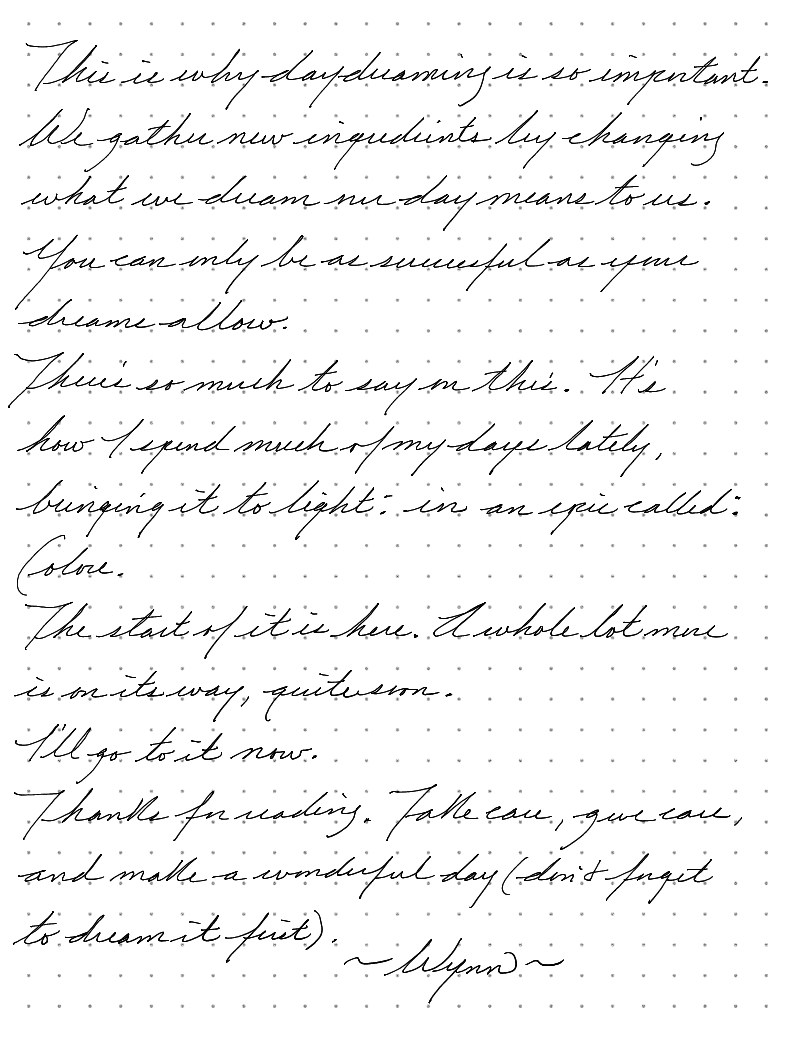 This is why daydreaming is so important.
We gather new ingredients by changing
what we dream our day means to us.
You can only be as successful as your
dreams allow.
There's so much to say on this. It's
how I spend much of my days lately,
bringing it to light: in an epic called:
Colore.
The start of it is here. A whole lot more
is on its way, quite soon.
I'll go to it now.
Thanks for reading. Take care, give care,
and make a wonderful day (don't forget
to dream it first).
~Wynn~